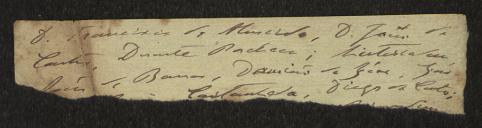 D. Francisco de Almeida, D. João de
Castro, Duarte Pacheco;
João de Barros, Damião de Góes,
Castanheda, Diogo do Couto,